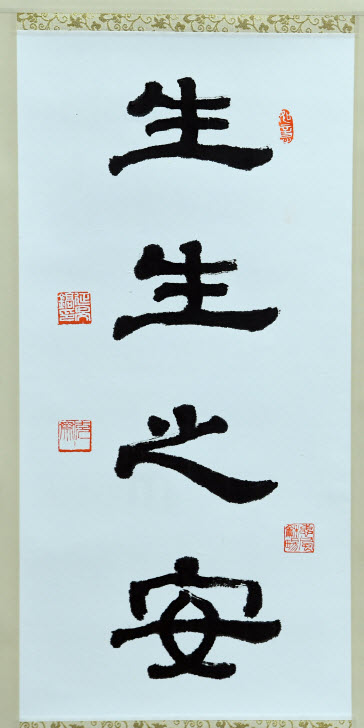 生生之安